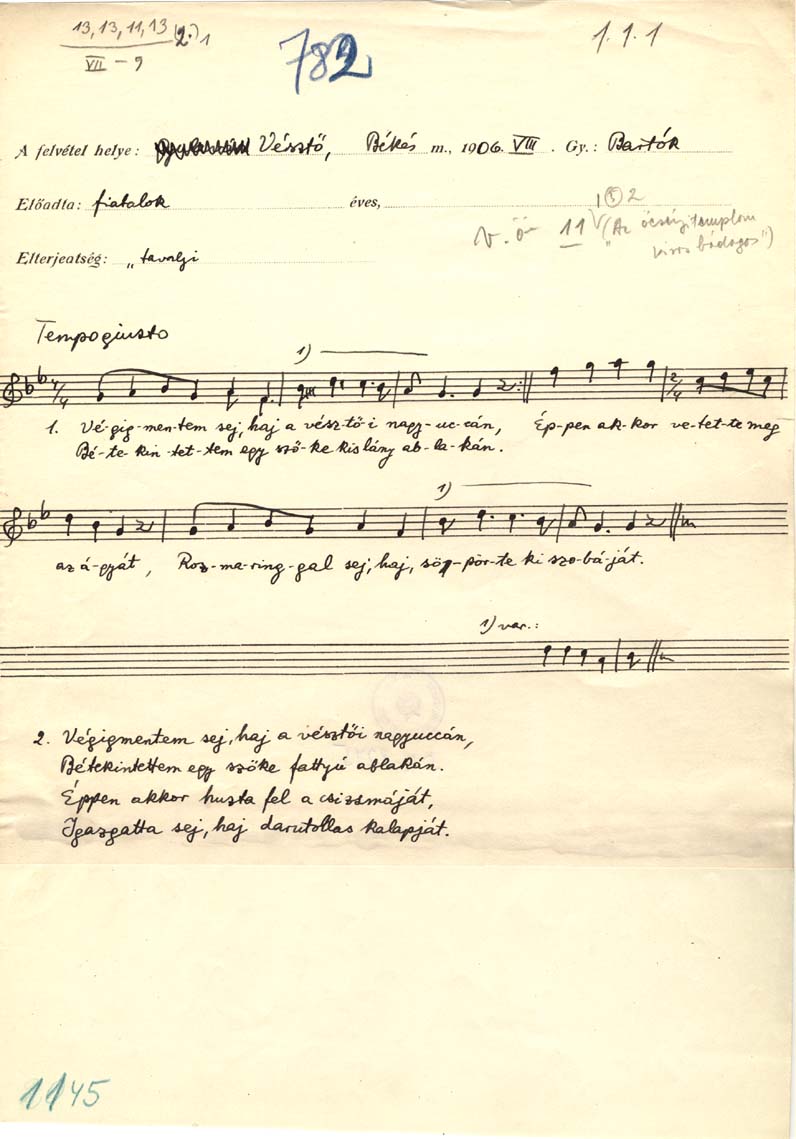 13, 13, 11, 13 (2.) 1
VII – 9
782
1. 1. 1
A felvétel helye: Vésztő, Békés m., 1906. VIII. Gy.: Bartók
Előadta: fiatalok éves,
1 5 2
Elterjeatség: „tavalji
V. ö 11 („Az öcsényi templom
piros bádogos")
Tempo giusto
1)
7/4 2/4
1. Vé-gig-men-tem sej, haj a vész-tő-i nagy-uc-cán, Ép-pen ak-kor ve-tet-te meg
Bé-te-kin-tet-tem egy sző-ke kislány ab-la-kán.
1)
az á-gyát, Roz-ma-ring-gal sej, haj, sö-pör-te ki szo-bá-ját.
1) var.:
2. Végigmentem sej, haj a vésztői nagyuccán,
Bétekintettem egy szőke fattyú ablakán.
Éppen akkor huzta fel a csizsmáját,
Igazgatta sej, haj darutollas kalapját.
1145